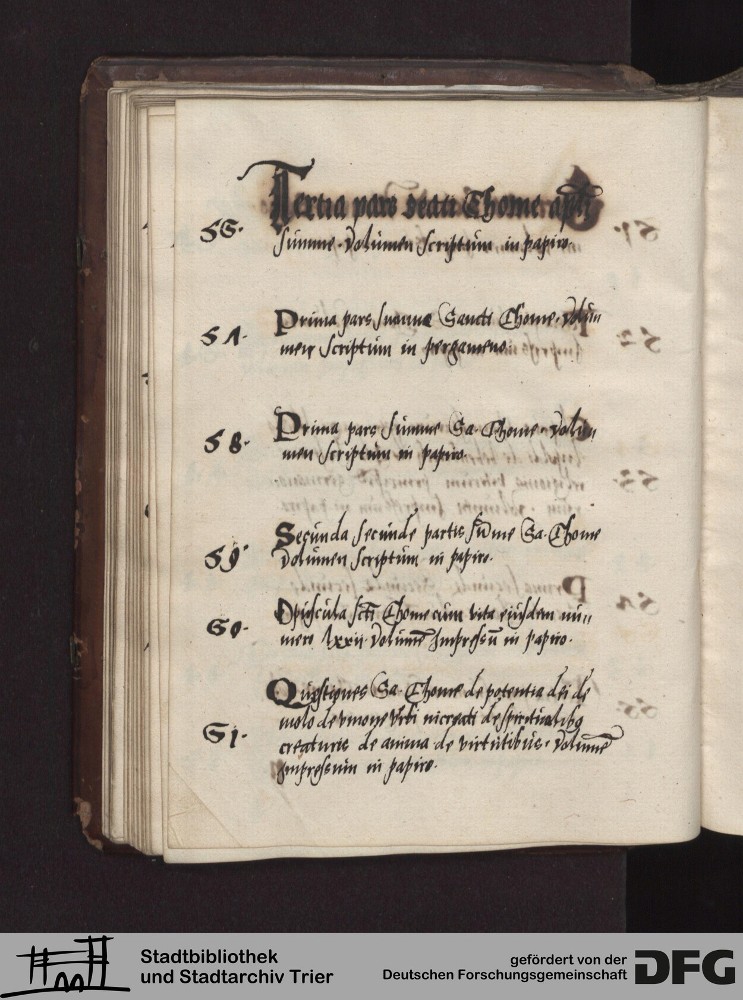 Tertia pars beati Thome
56. Summe. Volumen scriptum in papiro.
57. Prima pars summe Sancti Thome. Volu=
men scriptum in pergameno.
58. Prima pars summe Sa. Thome. Volu=
men scriptum in papiro.
59. Secunda secunde partis sūme Sa. Thome
Volumen scriptum in papiro.
60. Opuscula scti Thome cum vita eiusdem nu=
mero lxxii. Volumē Impressū in papiro.
Questiones Sa. Thome de potentia dei de
malo de vnione Vrbi increati de spiritualibꝫ
61. creaturis de anima de virtutibus. Volumē
Impressum in papiro.
Stadtbibliothek
und Stadtarchiv Trier
gefördert von der
Deutschen Forschungsgemeinschaft
DFG